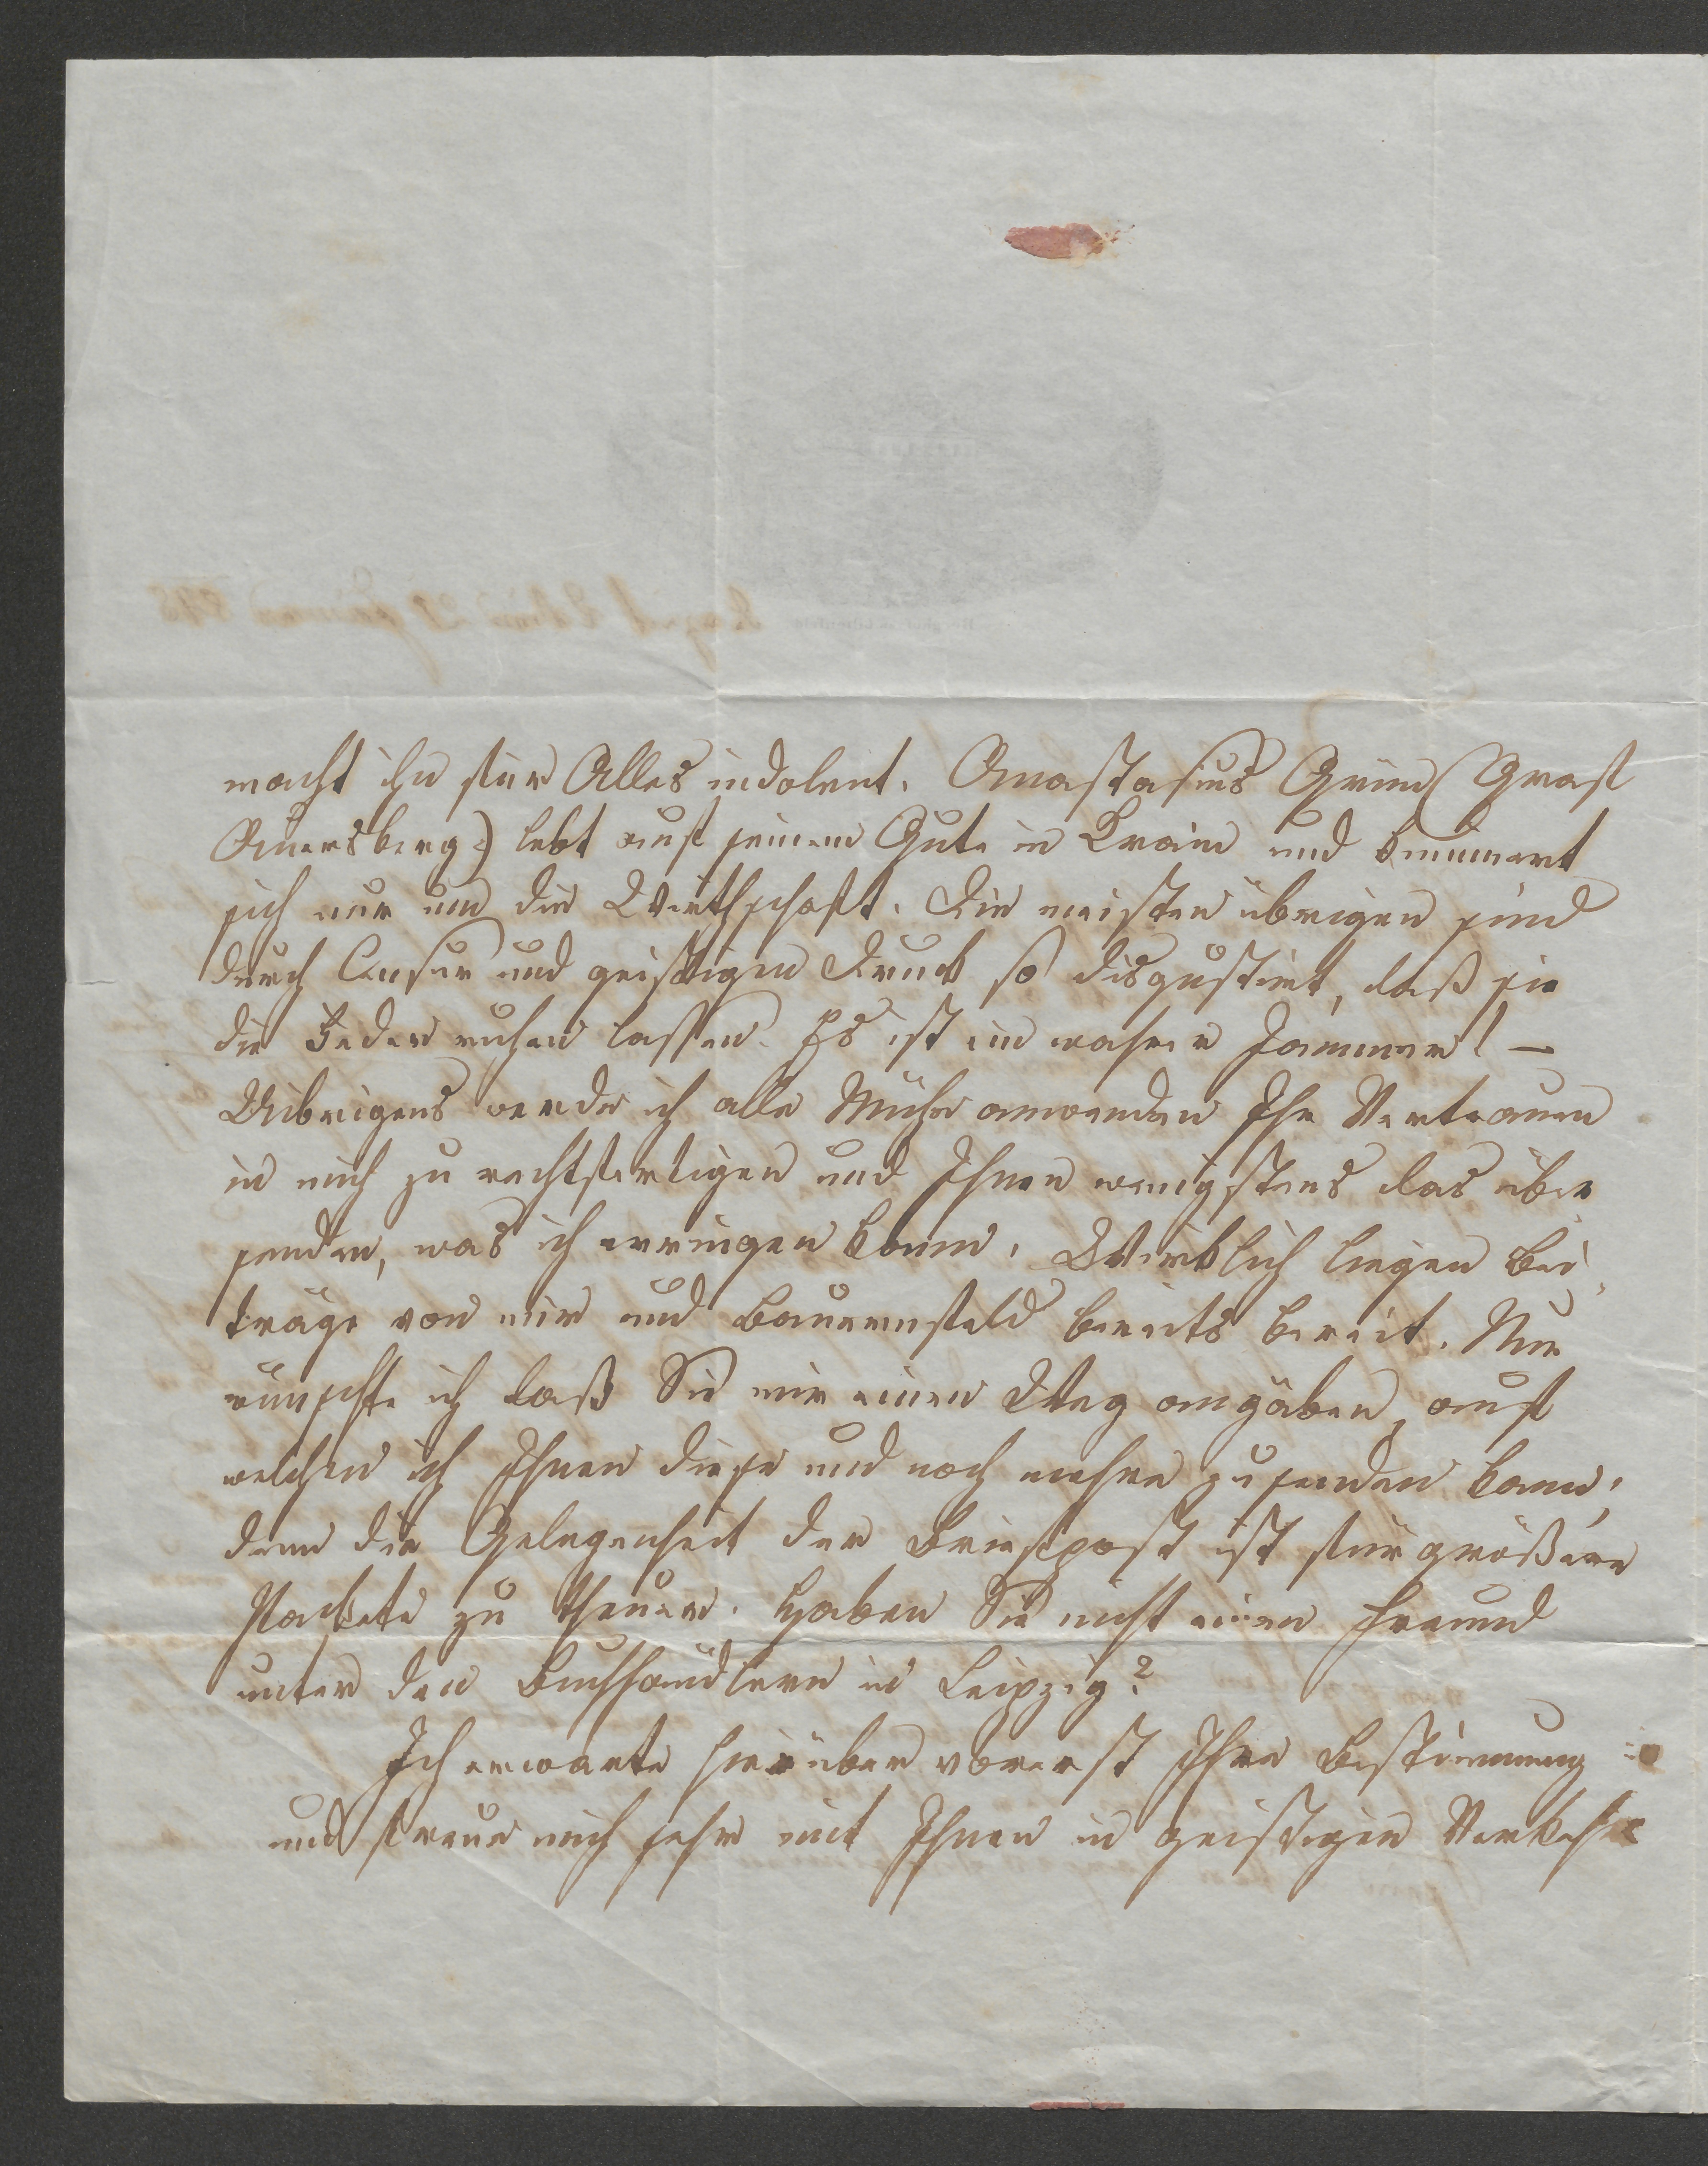 macht ihn für Alles indolent. Anastasius Grün (Graf
Auersberg) lebt auf seinem Gute in Krain und kümmert
sich nur um die Wirthschaft. Die meisten übrigen sind
durch Censur und geistigen Druck so disgustirt, daß sie
die Feder ruhen lassen. Es ist ein wahrer Jammer! —
Uibrigens werde ich alle Mühe anwenden Ihr Vertrauen
in mich zu rechtfertigen und Ihnen wenigstens das über
senden, was ich erringen kann. Wirklich liegen Bei
träge von mir und Bauernfeld bereits bereit. Nur
wünschte ich daß Sie mir einen Weg angäben, auf
welchen ich Ihnen diese und noch mehre zusenden kann;
denn die Gelegenheit der Briefpost ist für größere
Packete zu theuer. Haben Sie nicht einen Freund
unter den Buchhändlern in Leipzig?
Ich erwarte hierüber vorerst Ihre Bestimmung
und freue mich sehr mit Ihnen in geistigen Verkehr